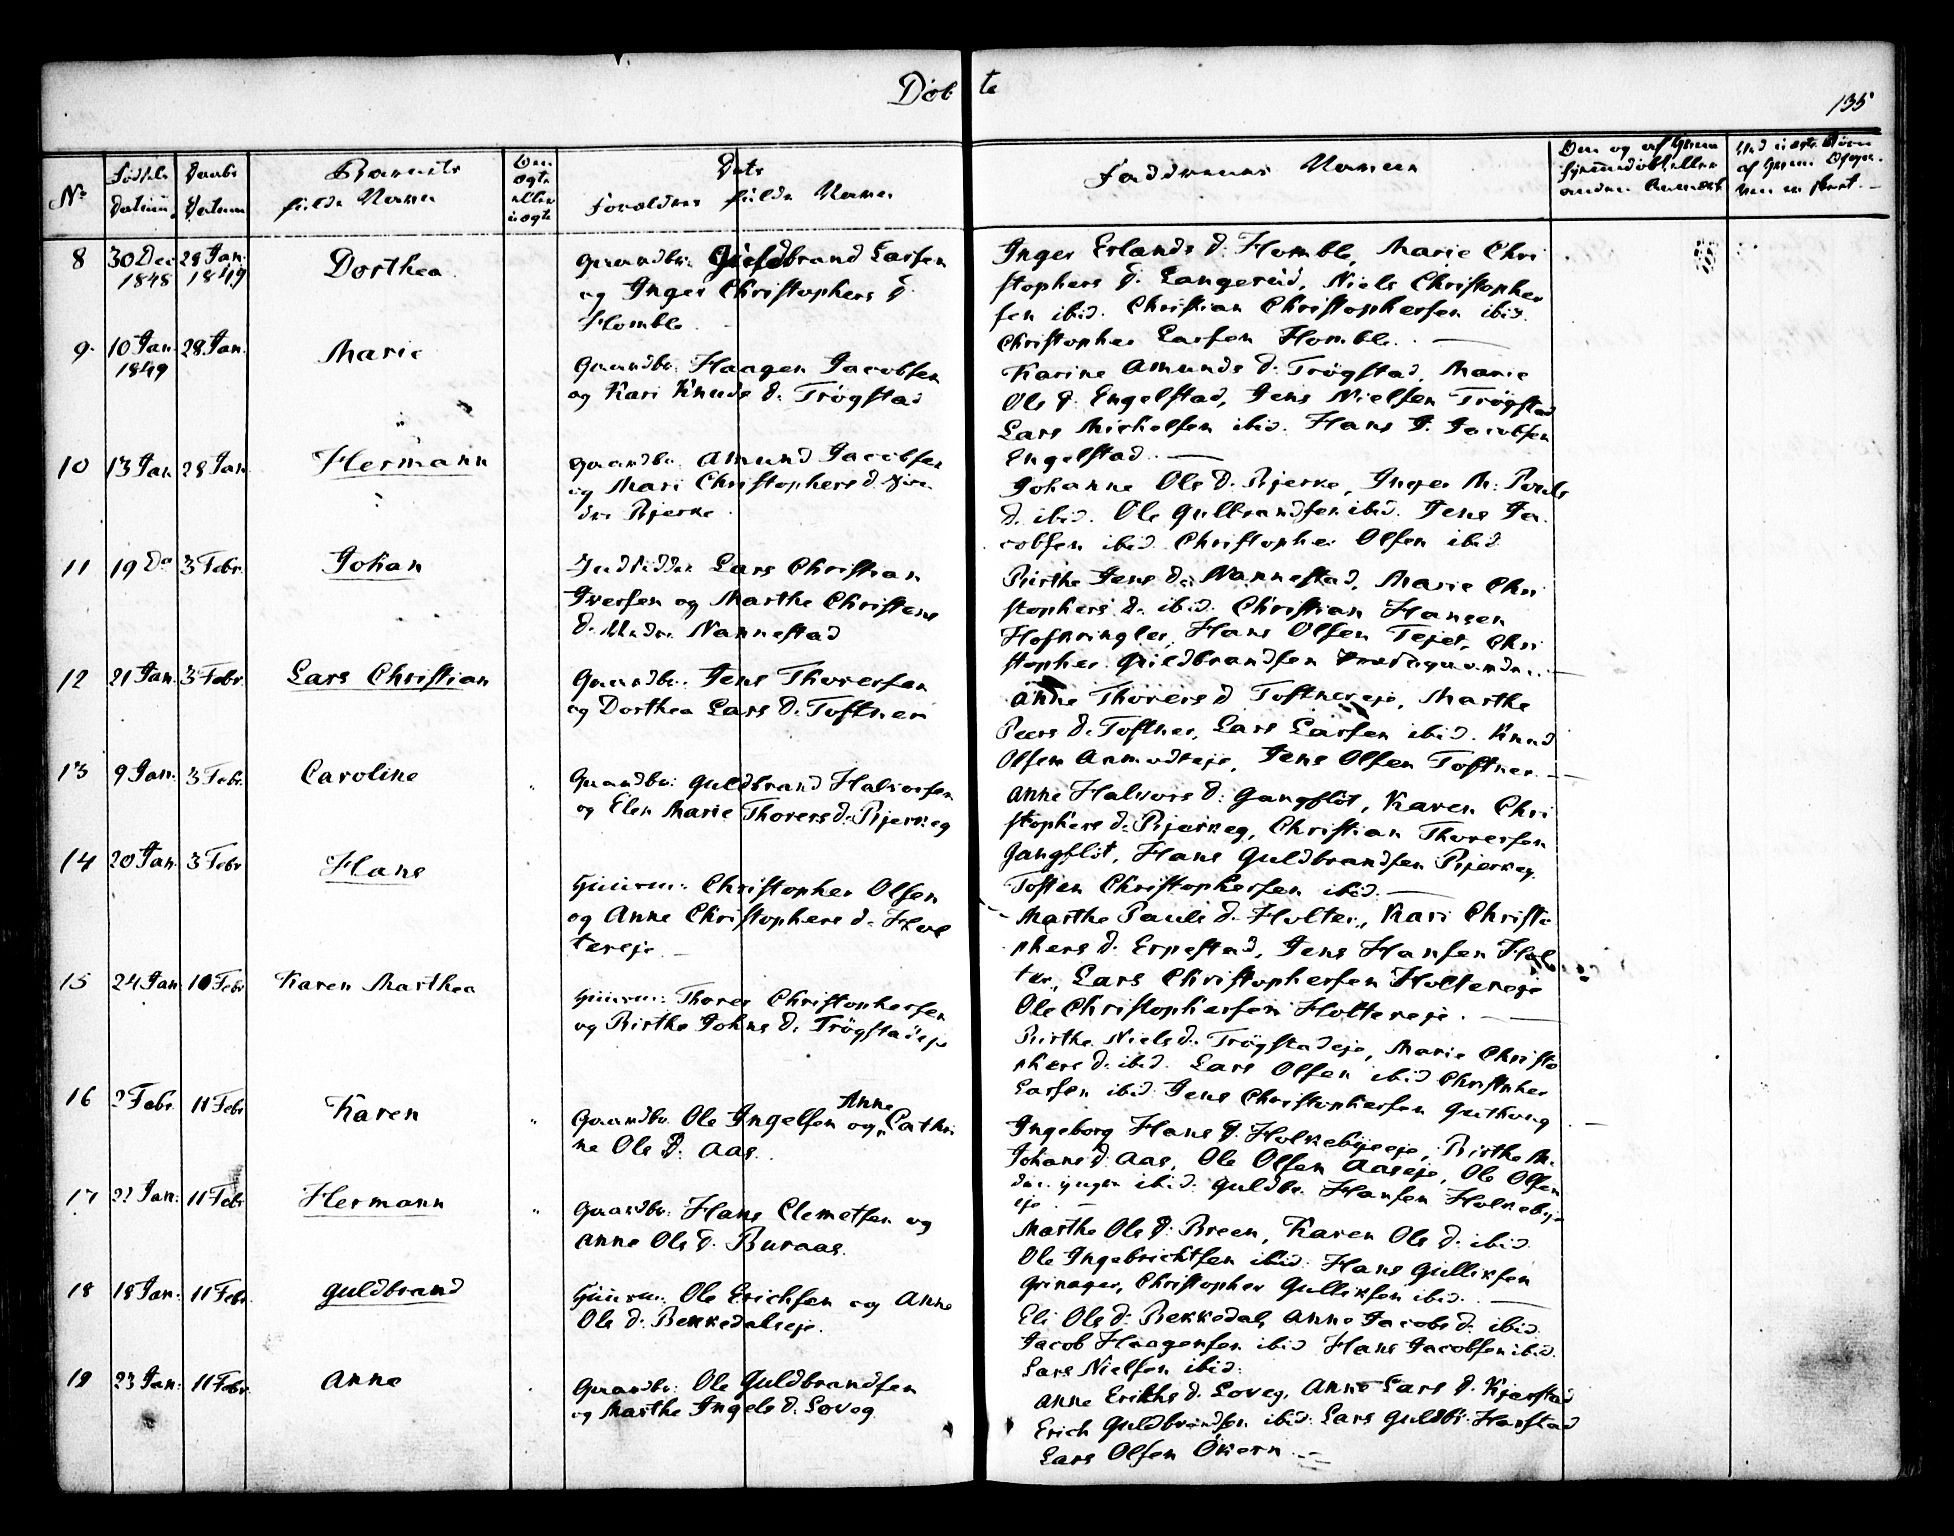 Døbte
135
No
Fødsels Datum.
Daabs Datum
Barnets fulde Navn
Om ægte eller uægte
Dets Forældres fulde Navn
Faddernes Navne
8
30 Dec 1848
28 Jan. 1849
Dorthea
Gaardbr. Guldbrand Larsen
og Inger Christophers D.
Homble
Inger Erlands D. Homble, Marie Chri
stophers D. Langerud, Niels Christopher
sen ibid. Christian Christophersen ibid.
Christopher Larsen Homble.
9.
10 Jan. 1849
28 Jan.
Marie
Gaardbr. Haagen Jacobsen
og Kari Knuds D. Trögstad
Karine Amunds D. Trögstad, Marie
Ols D. Engelstad, Jens Nielsen Trögstad
Lars Michelsen ibid. Hans J. Jacobsen
Engelstad.
10
13 Jan
28 Jan
Hermann
Gaardbr. Amund Jacobsen
og Mari Christophers D.
Bjerke
Johanne Ols D. Bjerke, Inger M. Pouls
D. ibid. Ole Gulbrandsen ibid. Jens Ja
cobsen ibid. Christopher Olsen ibid.
11
19 Do
3 Febr.
Johan
Lars Christian
Iversen og Marthe Christens
D. Nedre Nannestad
Birthe Jens D. Nannestad, Marie Chri
stophers D. ibid. Christian Hansen
Hofkringler, Hans Olsen Tejet, Chri
stopher Guldbrandsen
12
21 Jan.
3 Febr.
Lars Christian
Gaardbr. Jens Thoresen
og Dorthea Lars D. Toftner
Anne Thorers D. Toftnereje, Marthe
Peers D. Toftner, Lars Larsen ibid. Knud
Olsen Aamodteje, Jens Olsen Toftner.
13
9 Jan.
3 Febr.
Caroline
Gaardbr. Guldbrand Halvorsen
og Elen Marie Thorers D. Bjerkeg
Anne Halvors D. Gangflöt, Karen Chri
stophers D. Bjerkeg, Christian Thoresen
Gangflöt, Hans Guldbrandsen Bjerkeg
Tosten Christophersen ibid.
14
20 Jan.
3 Febr
Hans
Huusm. Christopher Olsen
og Anne Christophers D. Hol
tereje.
Marthe Pauls D. Holter, Kari Christo
phers D. Erpestad, Jens Hansen Hol
ter, Lars Christophersen Holtereje
Ole Christophersen Holtereje.
15
24 Jan
10 Febr
Karen Marthea
Huusm. Thorer Christophersen
og Birthe Johns D. Trögstadeje
Birthe Niels D. Trögstadeje, Marie Christo
phers D. ibid. Lars Olsen ibid Christopher
Larsen ibid. Jens Christophersen
16
2 Febr.
11 Febr
Karen
Gaardbr. Ole Ingelsen og Anne Cathri
ne Ols D. Aas.
Ingeborg Hans D. Holkebyeeje, Birthe M.
Johans D. Aas, Ole Olsen Aaseje, Ole Olsen
den yngre ibid. Guldbr. Hansen Holkebye
eje
17
22 Jan.
11 Febr
Hermann
Gaardbr. Hans Clemetsen og
Anne Ols D. Buraas.
Marthe Ols D. Breen, Karen Ols D. ibid.
Ole Ingebrichtsen ibid. Hans Gulliksen
Grinager, Christopher Gulliksen ibid.
18
18 Jan.
11 Febr.
Guldbrand
Huusm. Ole Erichsen og Anne
Ols D. Bekkedalseje.
Eli Ols D. Bekkedal, Anne Jacobs D. ibid.
Jacob Haagensen ibid Hans Jacobsen ibid.
Lars Nielsen ibid.
19
23 Jan.
11 Febr.
Anne
Gaardbr. Ole Guldbrandsen
og Marthe Ingels D. Loveg
Anne Eriks D. Loveg, Anne Lars D. Kjærstad
Erich Guldbrandsen ibid. Lars Guldbr. Harstad
Lars Olsen Ökern.